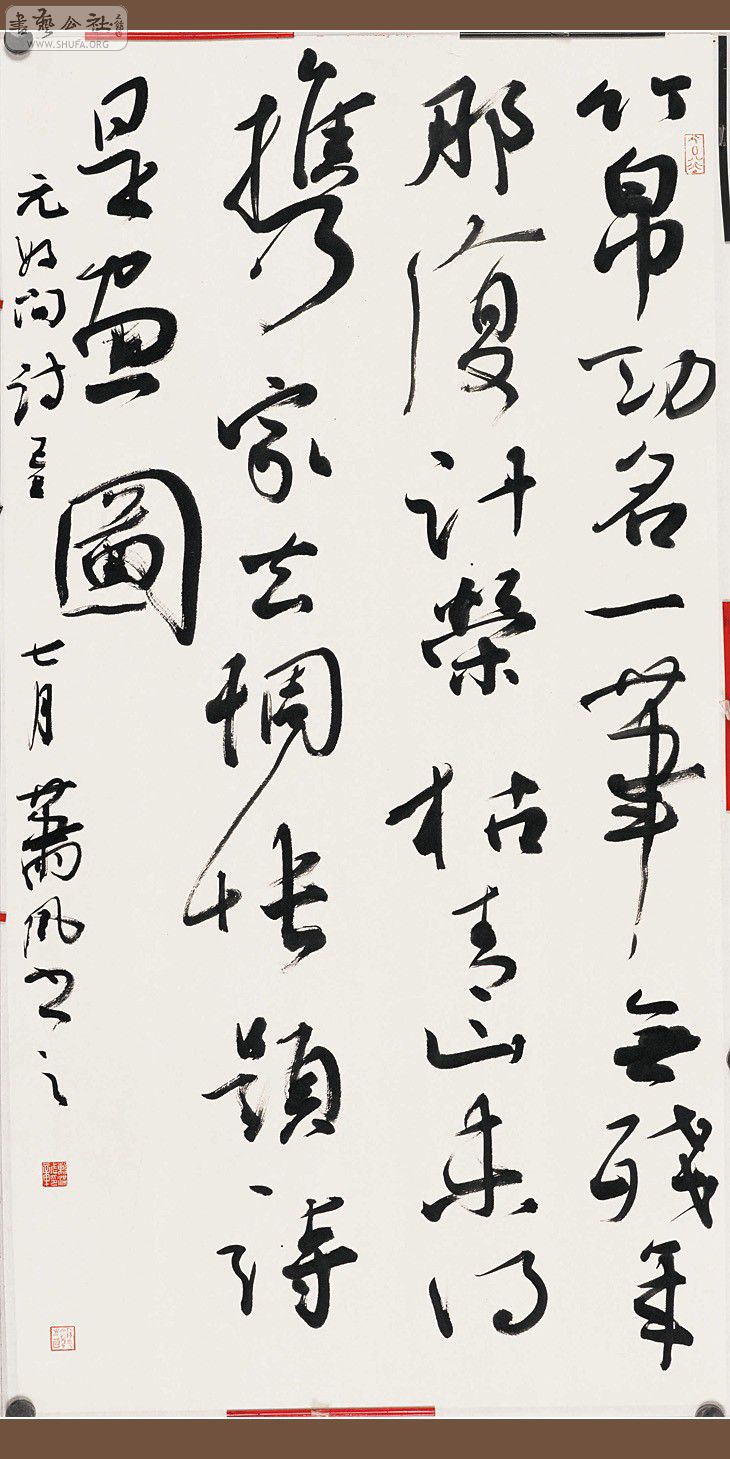 書藝公社
WWW.SHUFA.ORG
竹帛功名一筆無殘年
那復計榮枯青山未得
携家去惆悵題詩
是畫圖
元好問詩 七月蕭風書之